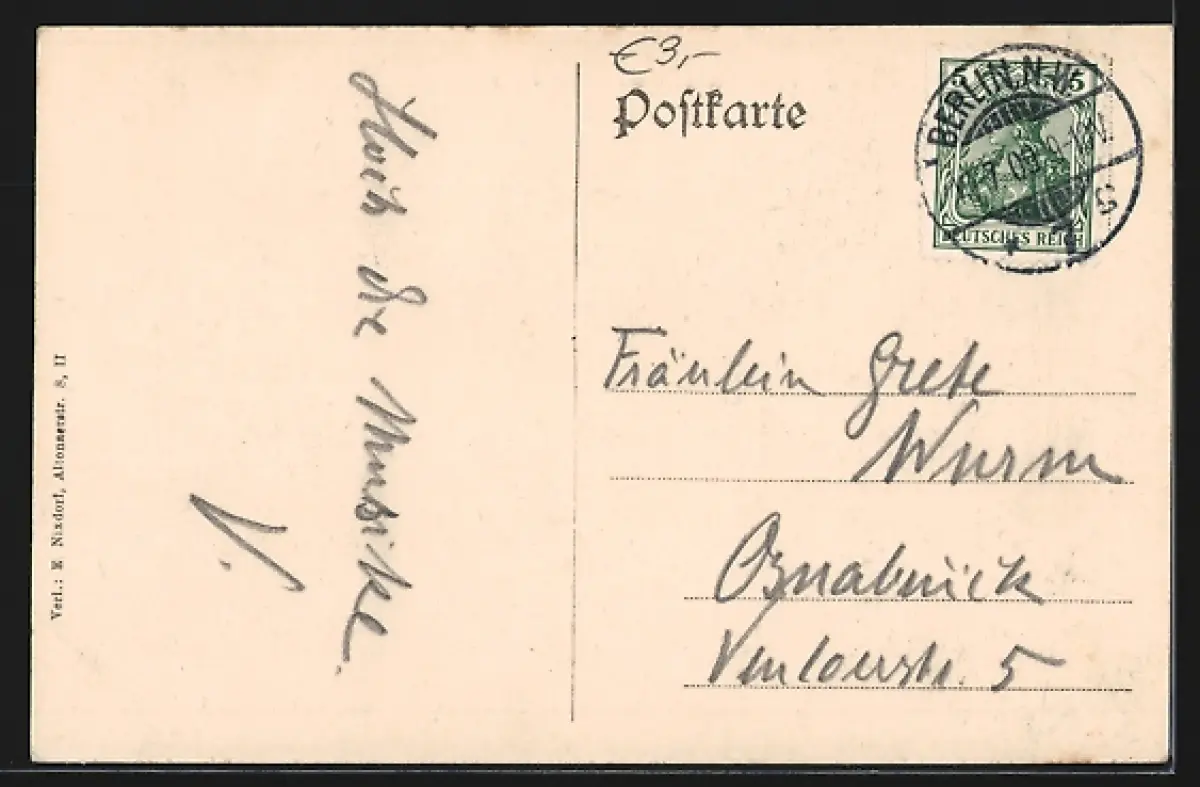 €3,-
Postkarte
BERLIN, N.
5
7. 09
C
DEUTSCHES REICH
Hoch die Musike.
V.
Verl.: E Nixdorf, Altonnerstr. 8, II
Fräulein Grete
Wurm
Osnabrück
Venloerstr. 5